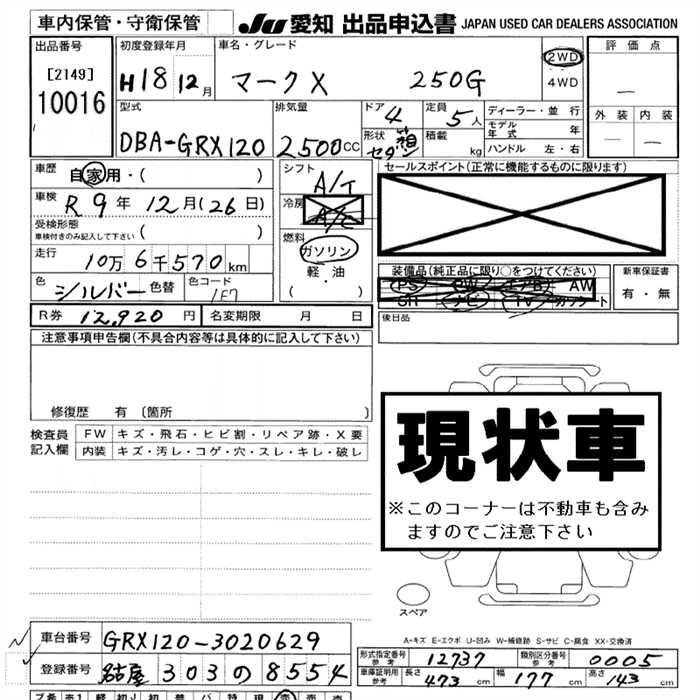 車内保管・守衛保管
JU 愛知 出品申込書 JAPAN USED CAR DEALERS ASSOCIATION
出品番号
[2149]
10016
初度登録年月
H18 12月
車名・グレード
マークX 250G
2WD
4WD
評価点
―
外装 内装
― ―
型式
DBA-GRX120
排気量
2500cc
ドア 4
形状 箱 セダン
定員 5人
積載 kg
ディーラー・並行
モデル年式 年
ハンドル 左・右
車歴 自家用・( )
車検 R9年 12月(26日)
受検形態
車検付きのみ記入して下さい ( )
走行 10万6千570km
色 シルバー 色替 色コード 1F7
シフト A/T
冷房 A/C
燃料
ガソリン
軽・油
( )
セールスポイント(正常に機能するものに限ります)
装備品(純正品に限り○をつけてください)
PS PW エアB AW
SR ナビ TV カワシート
新車保証書
有・無
後日品
R券 12,920円 名変期限 月 日
注意事項申告欄(不具合内容等は具体的に記入して下さい)
修復歴 有〔箇所 〕
検査員記入欄
FW キズ・飛石・ヒビ割・リペア跡・X要
内装 キズ・汚レ・コゲ・穴・スレ・キレ・破レ
現状車
※このコーナーは不動車も含み
ますのでご注意下さい
スペア
A-キズ E-エクボ U-凹み W-補修跡 S-サビ C-腐食 XX-交換済
車台番号 GRX120-3020629
登録番号 名古屋 303 の 8554
形式指定番号 参考 12737 類別区分番号 参考 0005
車庫証明用 参考 長さ 473cm 幅 177cm 高さ 143cm